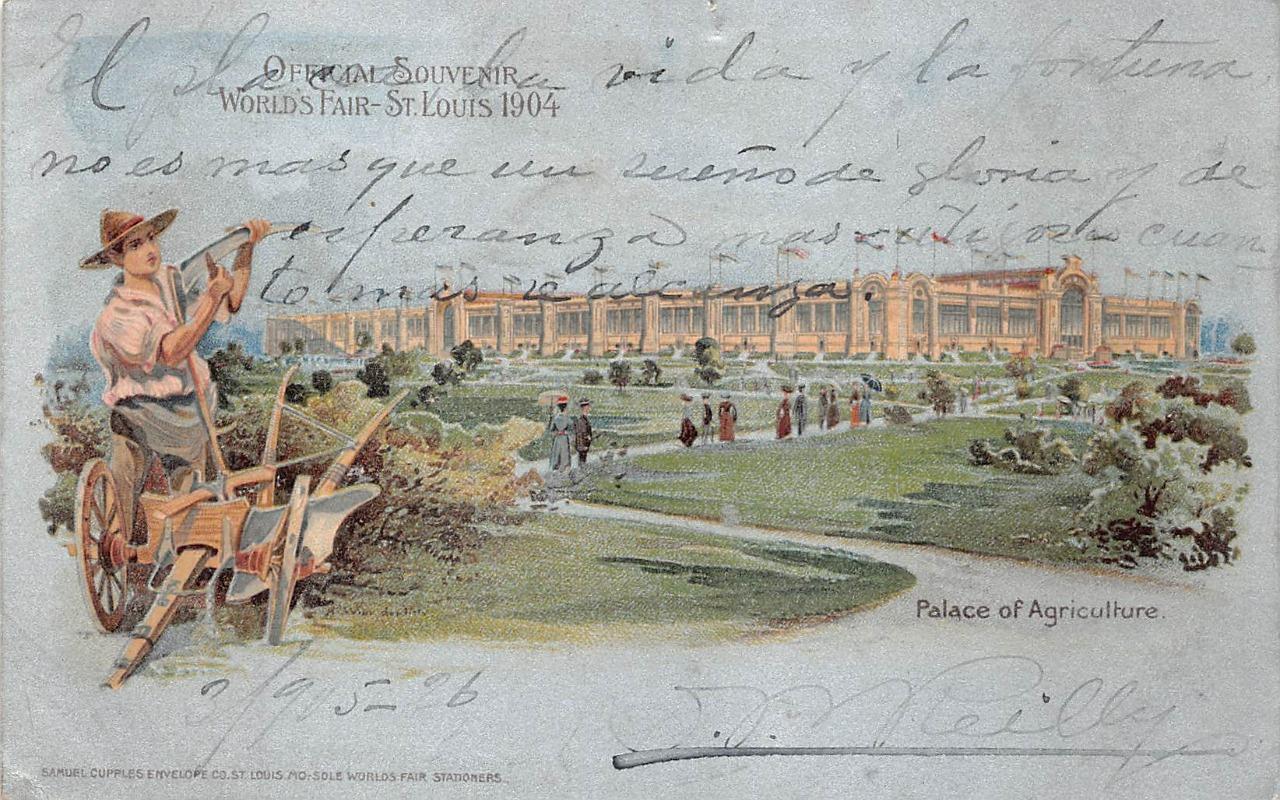 OFFICIAL SOUVENIR
WORLD'S FAIR-ST. LOUIS 1904
El placer la vida y la fortuna
no es mas que un sueño de gloria y de
esperanza mas cuan
to mas se alcanza.
Palace of Agriculture.
Reilly
SAMUEL CUPPLES ENVELOPE CO. ST. LOUIS, MO.-SOLE WORLDS FAIR STATIONERS.